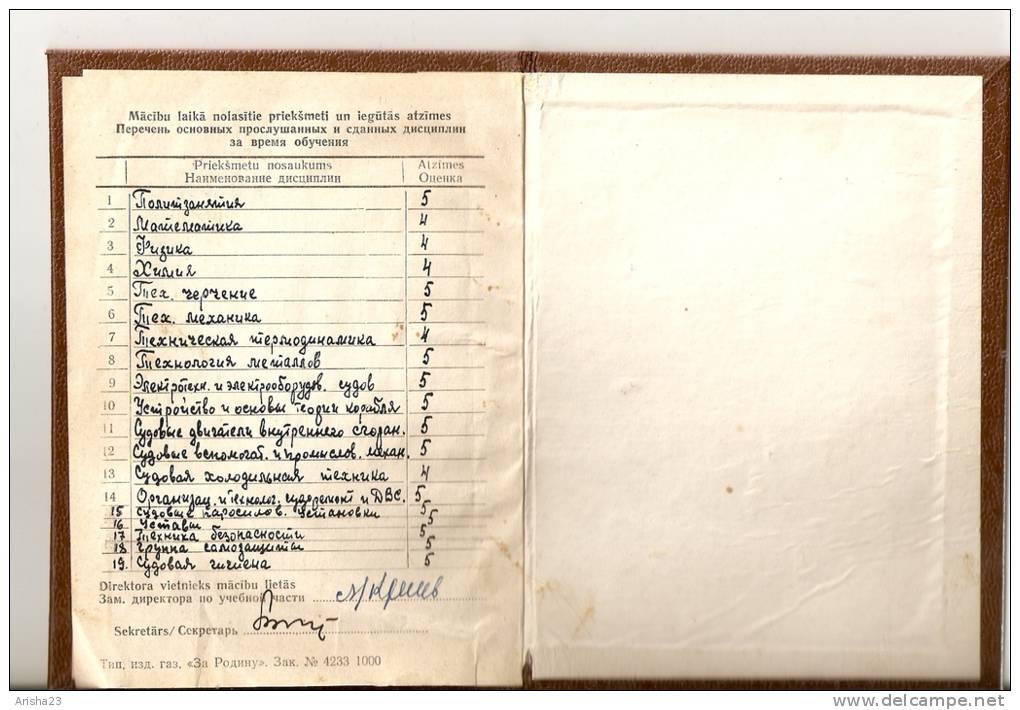 Mācību laikā nolasītie priekšmeti un iegūtās atzīmes
Перечень основных прослушанных и сданных дисциплин
за время обучения
Priekšmetu nosaukums Atzīmes
Наименование дисциплин Оценка
1 Политзанятия 5
2 Математика 4
3 Физика 4
4 Химия 4
5 Тех. черчение 5
6 Тех. механика 5
7 Техническая термодинамика 4
8 Технология металлов 5
9 Электротехн. и электрооборудов. судов 5
10 Устройство и основы теории корабля 5
11 Судовые двигатели внутреннего сгоран. 5
12 Судовые вспомогат. и промыслов. механ. 5
13 Судовая холодильная техника 4
14 Организац. и технолог. судоремонт и ДВС. 5
15 Судовые паросилов. установки 5
16 Уставы 5
17 Техника безопасности 5
18 Группа самозащиты 5
19. Судовая гигиена 5
Direktora vietnieks mācību lietās
Зам. директора по учебной части
Sekretārs/Секретарь
Тип. изд. газ. «За Родину». Зак. № 4233 1000
Arisha23 www.delcampe.net